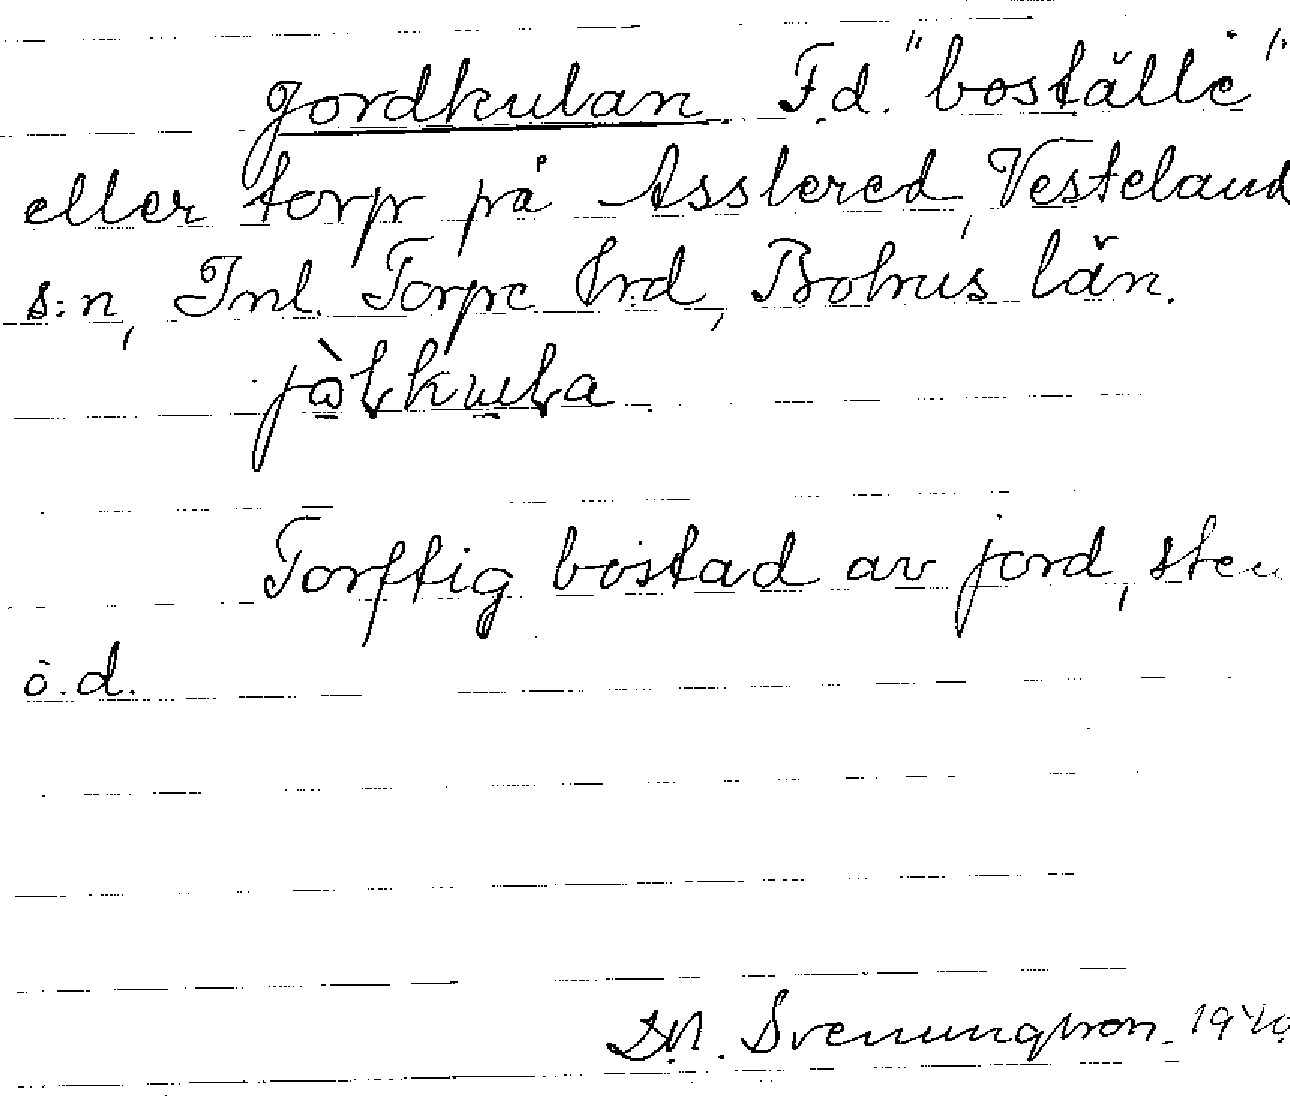 Jordkulan. F.d. "boställe"
eller torp på Asslered, Vesteland
s:n, Inl. Torpe hrd, Bohus län.
Torftig bostad av jord, sten
o.d.
D.A. Svenungsson. 1940